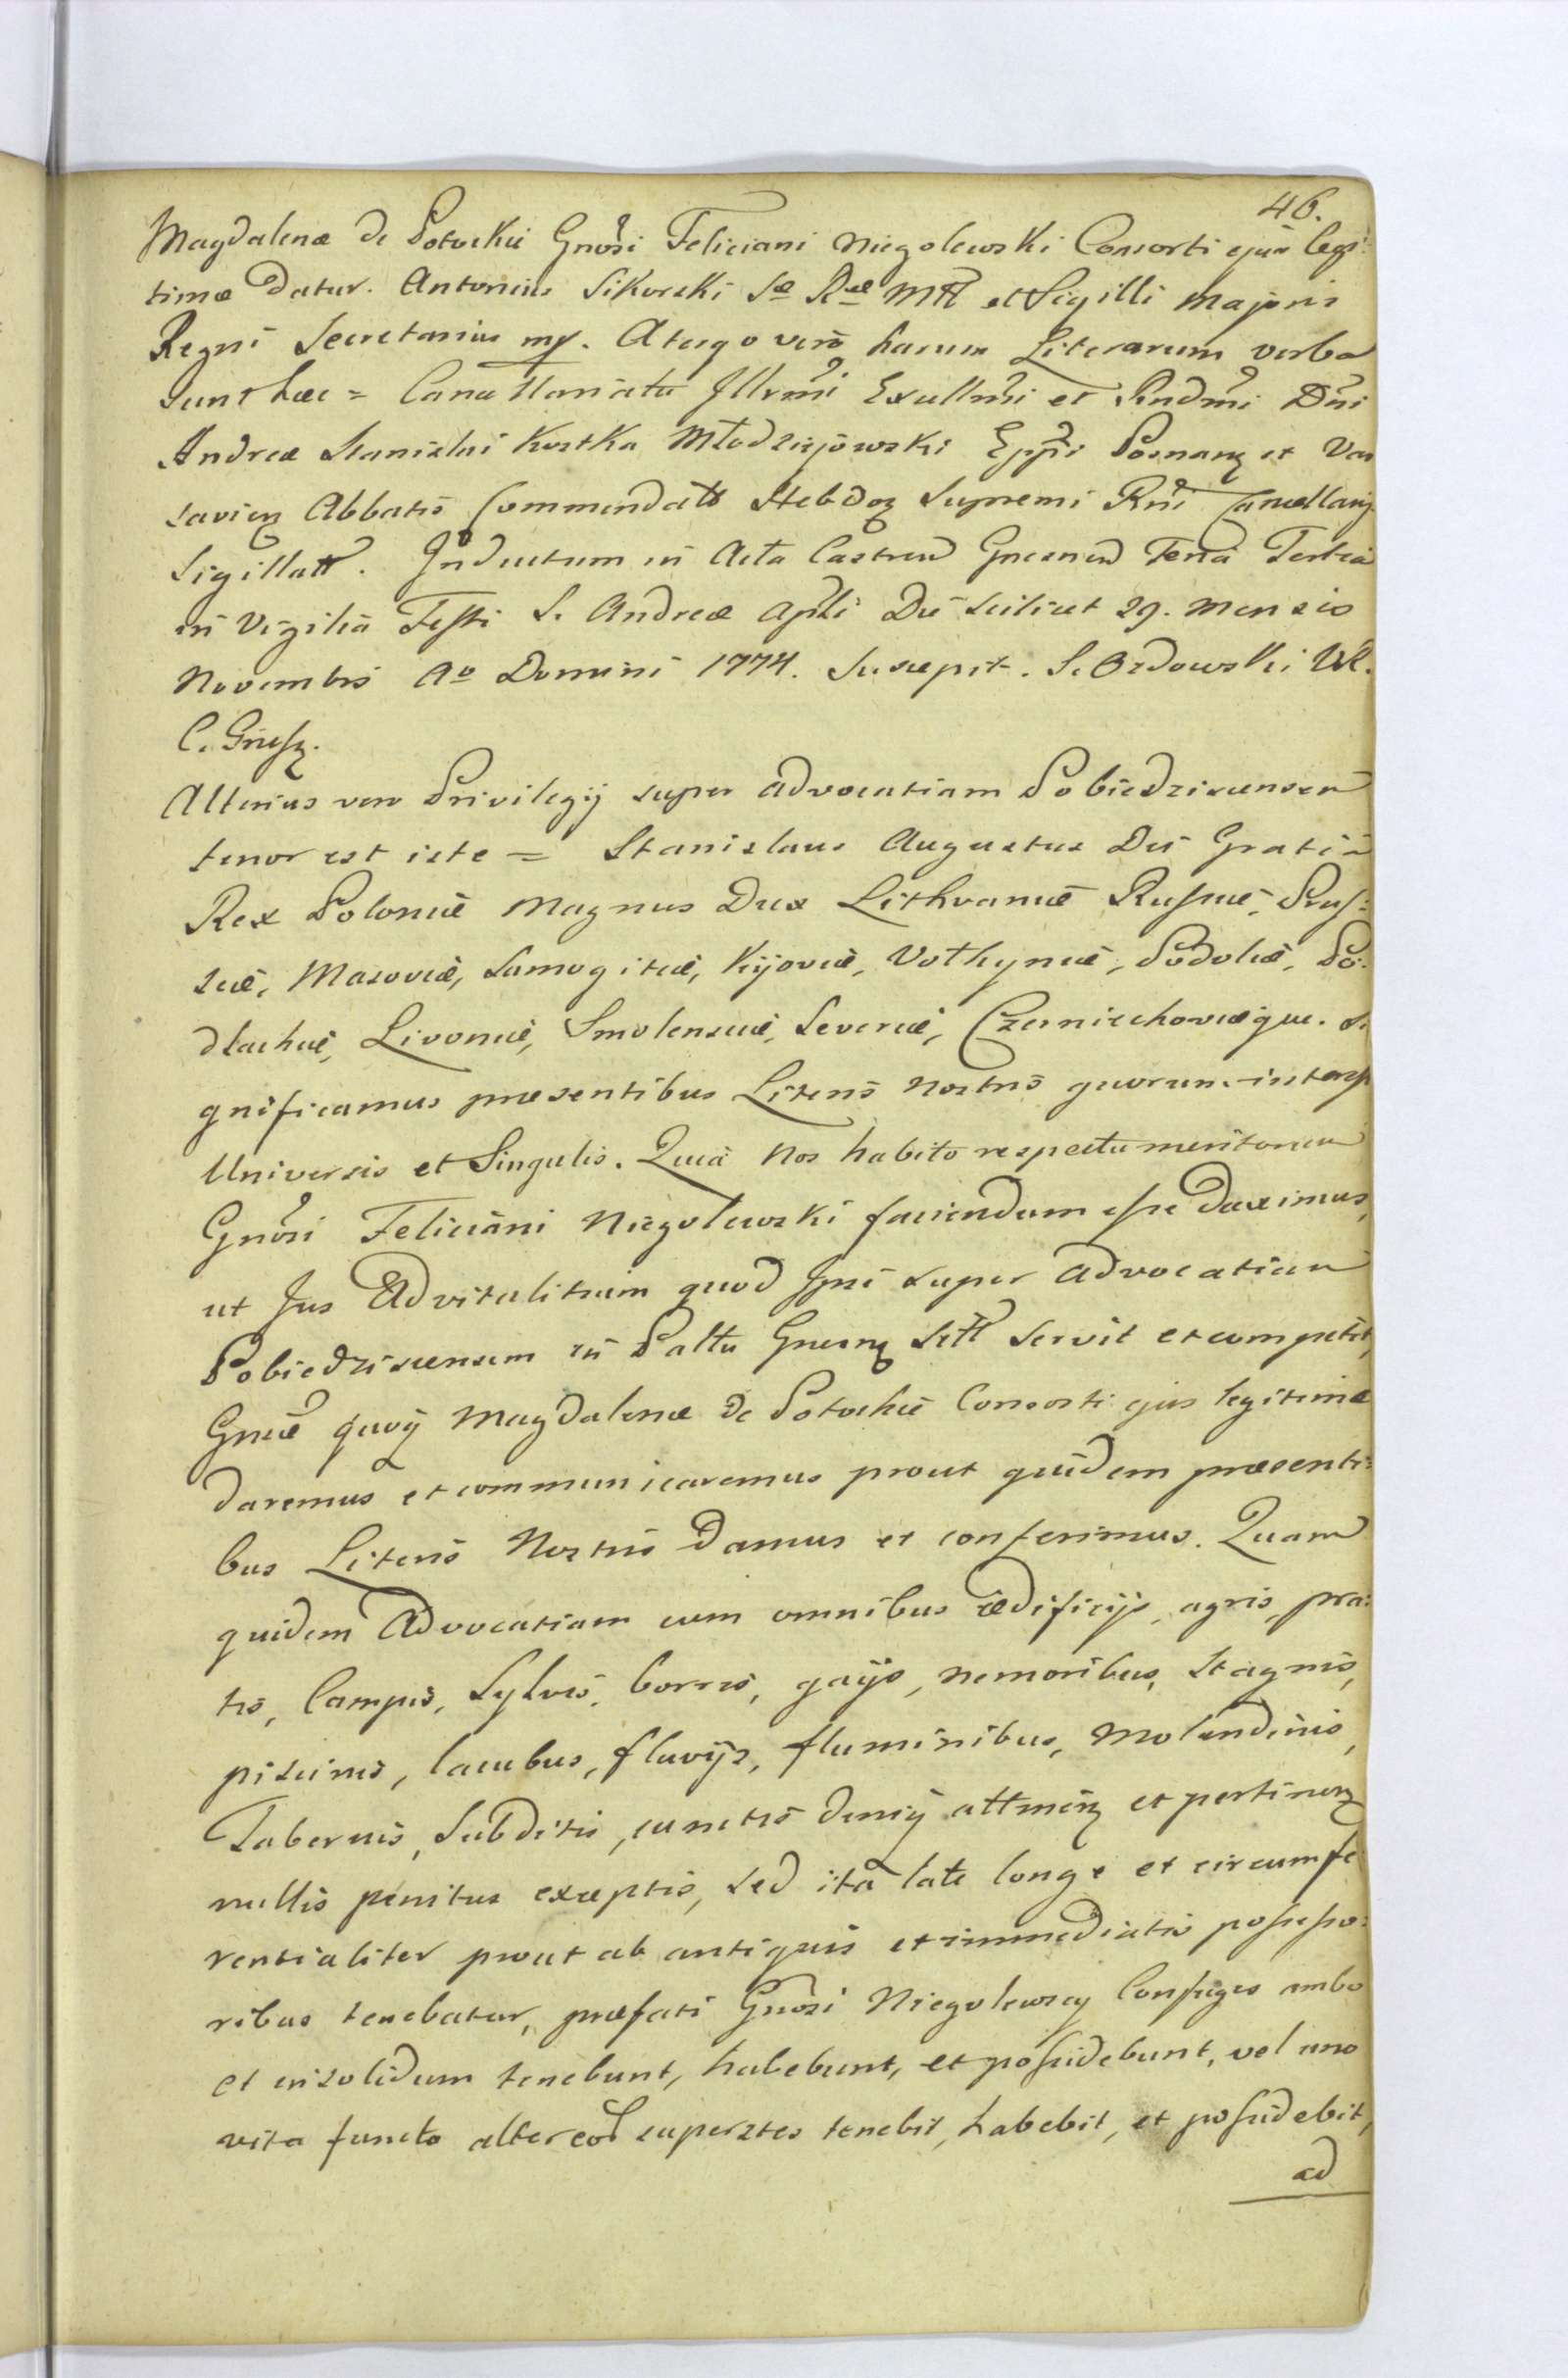 46.
Magdalenæ de Potockie Gnosi Feliciani Niegolewski Consorti ejus legi:
timæ datur. Antonius Sikorski Sæ Ræ Mtt et Sigilli Majoris
Regni Secretarius mp. Atergo vero harum Literarum verba
sunt hæc = Cancellariatu Illrmi Excellmi et Rndmi Dni
Andreæ Stanislai Kostka Młodziejowski Eppi Posnanę et Var
savięn Abbatis Commendatt Hebdoę Supremi Rni Cancellarij
Sigillatt. Inductum in Acta Castren Gnesnen Feria Tertia
in Vigilia Festi S. Andreæ Apli Die scilicet 29. Mensis
Novembris Ao Domini 1774. Suscepit. S. Ordowski
C. Gnesę.
Alterius vero Privilegij super advocatiam Pobiedziscensem
tenor est iste = Stanislaus Augustus Dei Gratia
Rex Poloniæ Magnus Dux Lithvaniæ Russiæ, Prus:
siæ, Masoviæ, Samogitiæ, Kijoviæ, Vołhyniæ, Podoliæ, Po:
dlachiæ, Livoniæ, Smolensciæ, Severiæ, Czerniechoviæque. Si
gnificamus præsentibus Literis Nostris quorum interest
Universis et Singulis. Quia Nos habito respectu meritorum
Gnosi Feliciani Niegolewski faciendum esse duximus,
ut Jus Advitalitium quod Ipsi super advocatiam
Pobiedziscensem in Pallu Gnesnę Sitt servit et competit,
Gnæ quoq Magdalenæ de Potockie Consorti ejus legitimæ
daremus et communicaremus prout quidem præsenti:
bus Literis Nostris Damus et conferimus. Quam
quidem Advocatiam cum omnibus ædificijs, agris, pra:
tis, Campis, Sylvis, borris, gaijs, nemoribus, Stagnis,
piscinis, lacubus, fluvijs, fluminibus, Molendinis,
Tabernis, Subditis, cunctis deniq attinenę et pertinenę
nullis penitus exceptis, sed ita late longe et circumfe
rentialiter prout ab antiquis et immediatis possesso:
ribus tenebatur, præfati Gnosi Niegolewscy Conjuges ambo
et insolidum tenebunt, habebunt, et possidebunt, vel uno
vita functo alter superstes tenebit, habebit, et possidebit,
ad